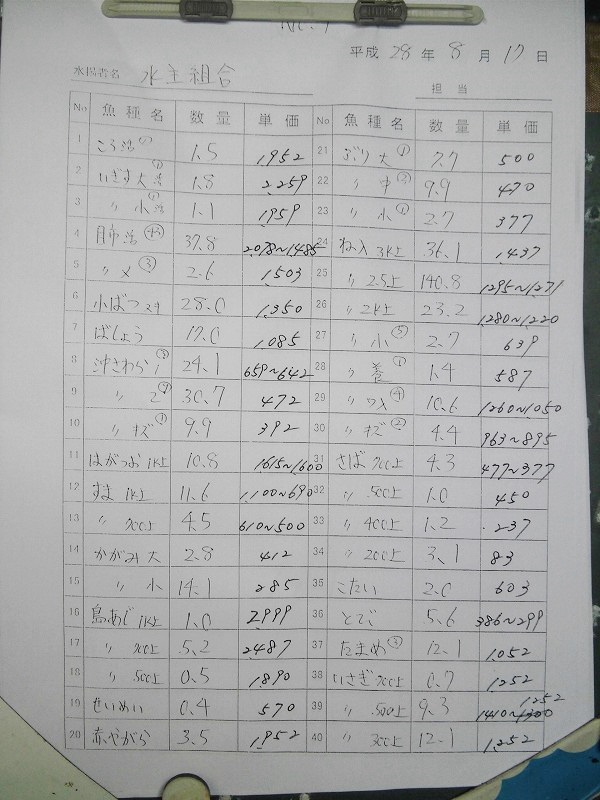 No. 1
平成 28 年 8 月 17 日
水揚者名 水主組合
担当
No 魚種名 数量 単価
1 ころ活 1.5 1,952
2 いぎす大活 ① 1.8 2,259
3 〃 小活 ① 1.1 1,959
4 目市活 37.8 2,078~1,485
5 〃 メ ③ 2.6 1,503
6 小ばつ 28.0 1,350
7 ばしょう 17.0 1,085
8 沖さわら 1 ③ 24.1 659~642
9 〃 2 30.7 472
10 〃 キズ ① 9.9 392
11 はがつお 1K上 10.8 1615~1,600
12 すま 1K上 11.6 1,100~690
13 〃 700上 4.5 610~500
14 かがみ 大 2.8 412
15 〃 小 14.1 285
16 島あじ 1K上 1.0 2,999
17 〃 700上 5.2 2,487
18 〃 500上 0.5 1,890
19 せいめい 0.4 570
20 赤やがら 3.5 1,952
No 魚種名 数量 単価
21 ぶり 大 ① 7.7 500
22 〃 中 ② 9.9 470
23 〃 小 ① 2.7 377
24 ねいり 3K上 36.1 1,437
25 〃 2.5上 140.8 1295~1,271
26 〃 2K上 23.2 1,280~1,220
27 〃 小 2.7 639
28 〃 養 ① 1.4 587
29 〃 ④ 10.6 1260~1,050
30 〃 キズ ② 4.4 963~895
31 さば 700上 4.3 477~377
32 〃 500上 1.0 450
33 〃 400上 1.2 237
34 〃 200上 3.1 83
35 こたい 2.0 603
36 とご 5.6 386~299
37 たまめ ③ 12.1 1,052
38 いさぎ 700上 0.7 1,252
39 〃 500上 9.3 1410~1,252
40 〃 300上 12.1 1,252